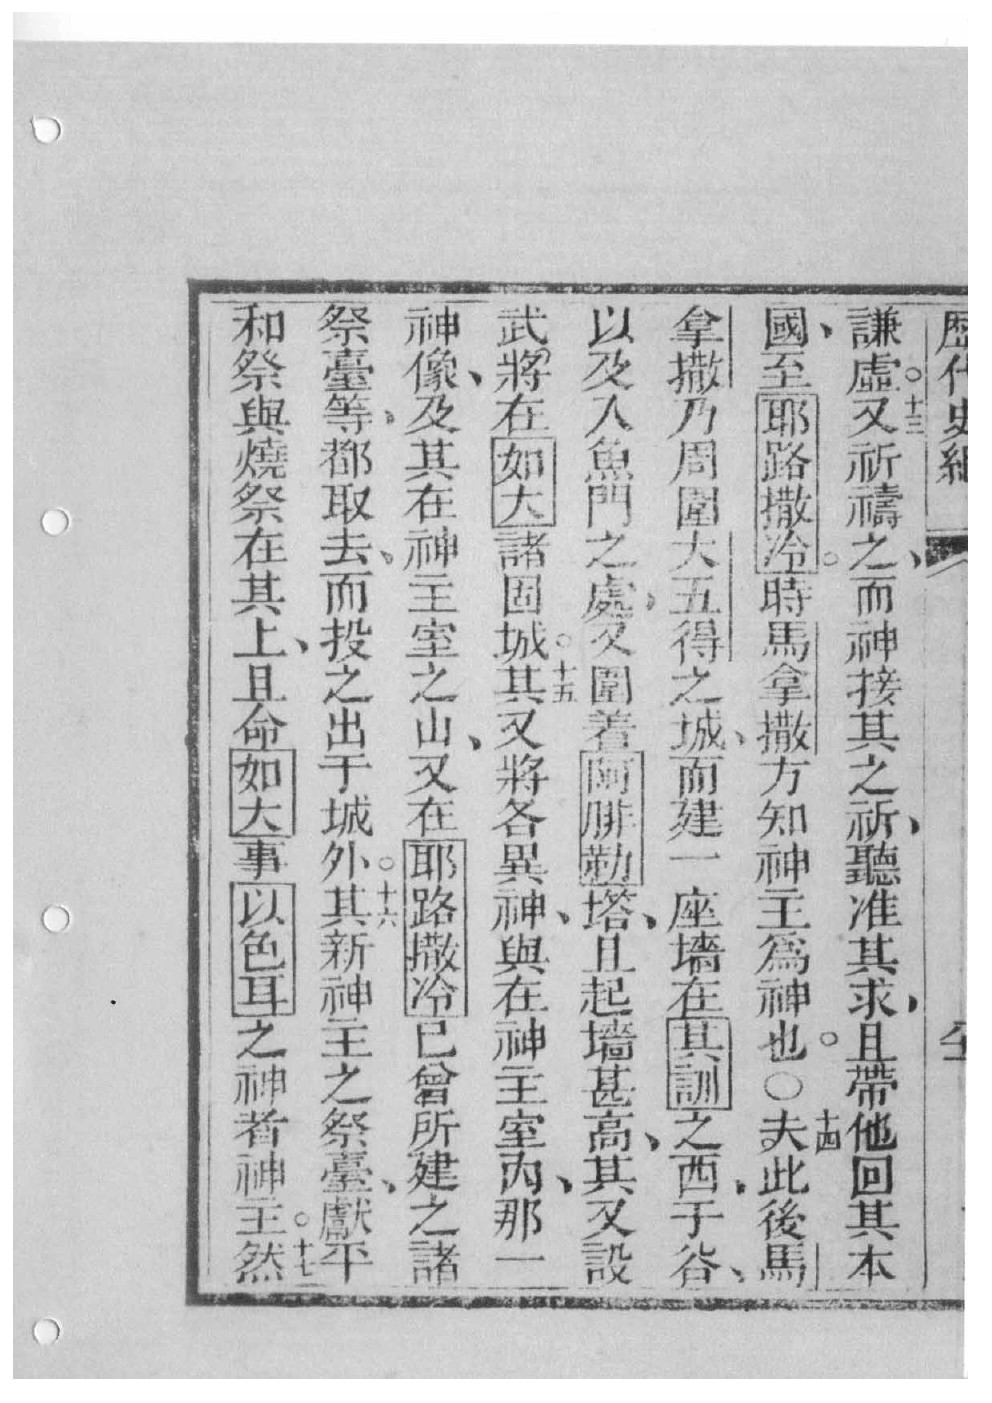 歷代史紀
謙虛○十三又祈禱之、而神接其之祈、聽准其求、且帶他回其本
國、至耶路撒冷。時馬拿撒方知神主為神也。○十四夫此後馬
拿撒乃周圍大五得之城、而建一座墻在其訓之西、于谷、
以及入魚門之處、又圍着阿腓勒塔、且起墻甚高、其又設
武將在如大諸固城。十五其又將各異神、與在神主室內、那一
神像、及其在神主室之山、又在耶路撒冷已曾所建之諸
祭臺等、都取去、而投之出于城外。十六其新神主之祭臺、獻平
和祭與燒祭在其上、且命如大事以色耳之神者神主。十七然